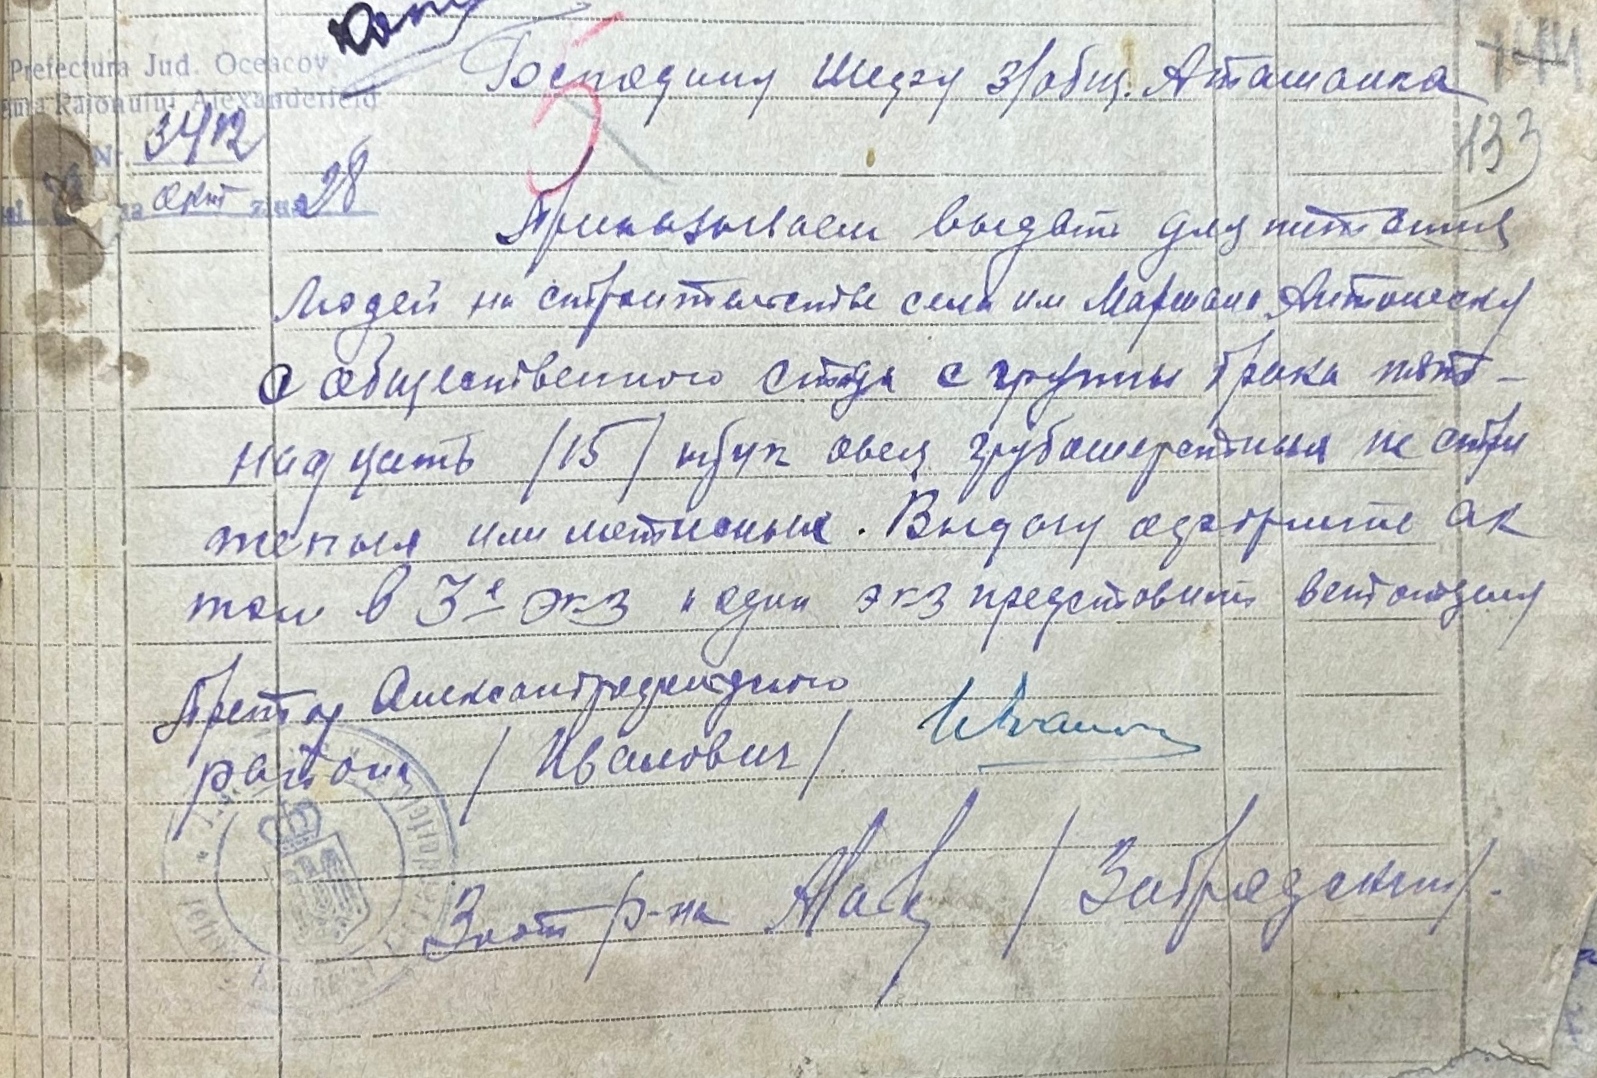 Prefectura Jud. Oceacov
Raionului Alexanderfeld
Nr. 3412
окт 28
Господину Шефу з/общ. Аташанка
144
133
Приказываем выдать для питания
людей на строительстве села им Маршала Антонеску
с общественного стада с группы брака пят-
надцать /15/ штук овец грубошерстных не стри
женых или метисных. Выдачу оформите ак
том в 3х экз и один экз представить
Претор Александерфельдского
района /Иванович/
Зоот р-на / Забродский/.